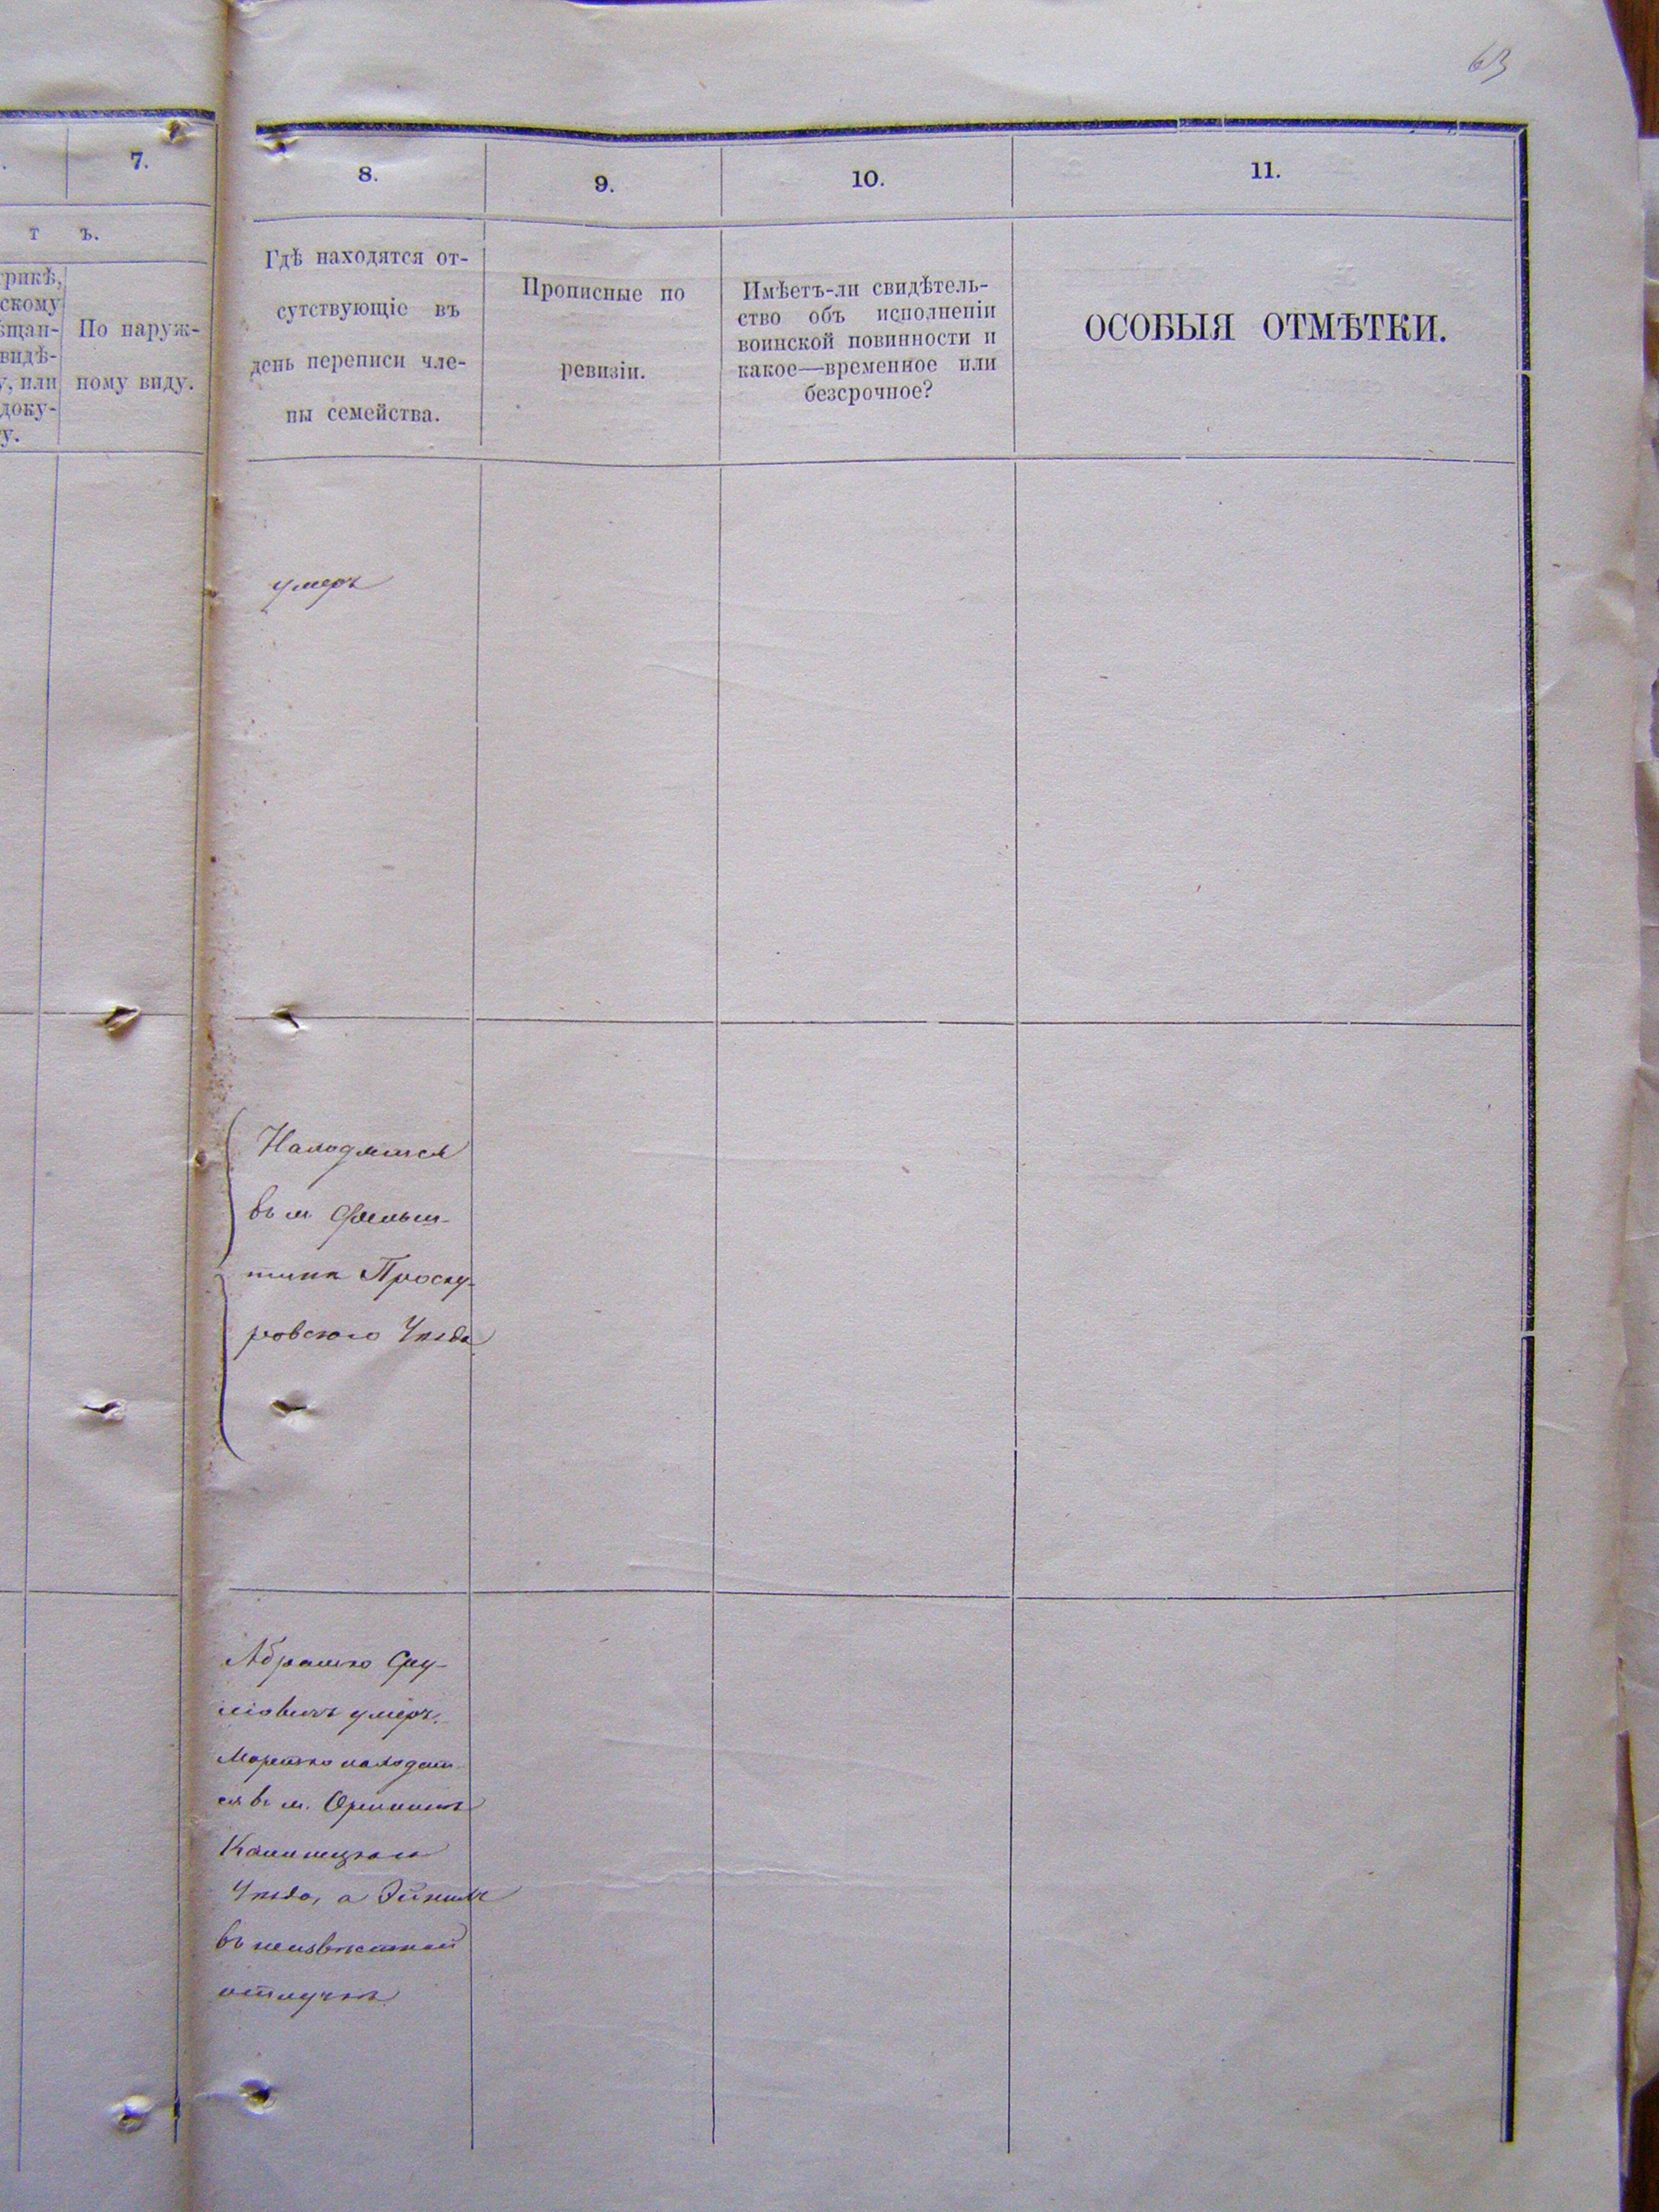 63
7.
8.
9.
10.
11.
т ъ.
трикѣ,
скому
ѣщан-
видѣ-
у, или
доку-
у.
По наруж-
ному виду.
Гдѣ находятся от-
сутствующіе въ
день переписи чле-
ны семейства.
Прописные по
ревизіи.
Имѣетъ-ли свидѣтель-
ство объ исполненіи
воинской повинности и
какое—временное или
безсрочное?
ОСОБЫЯ ОТМѢТКИ.
умеръ
Находятся
въ м Фельш-
тинѣ Проску-
ровского Уѣзда
Абрамко Сру-
леовичъ умеръ.
Мошко находит
ся въ м. Орининѣ
Каменецкаго
Уѣзда, а
въ неизвѣстной
отлучкѣ